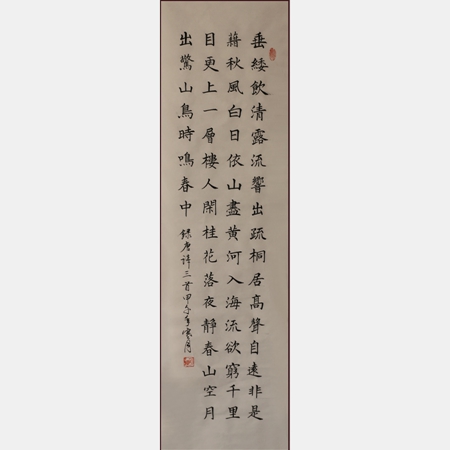 垂緌飲清露流響出疏桐居高聲自遠非是
藉秋風白日依山盡黃河入海流欲窮千里
目更上一層樓人閑桂花落夜靜春山空月
出驚山鳥時鳴春中 録唐詩三首甲午年寒月